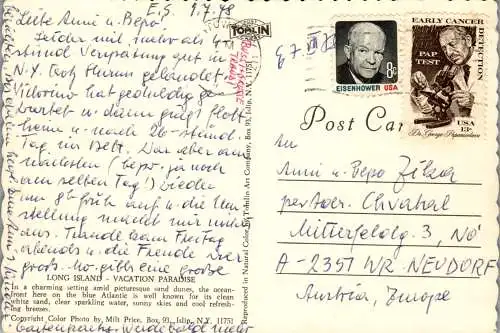 F.S. 9.7.78
Liebe Anni u. Bepo!
Leider mit mehr als 4
stünd. Verspätung gut in
N.Y. trotz Sturm gelandet.
Viktorino hat geduldig ge-
wartet u. dann ging's flott
heim u. nach 26-stünd.
Tag ins Bett. Dann aber am
nächsten (bezw. ja noch
am selben Tag!) wieder
um 8h früh auf u. die Um-
stellung macht mir nichts
aus. Traudl kam Freitag
abends u. die Freude war
groß. Mo. gibt's eine große
LONG ISLAND - VACATION PARADISE
In a charming setting amid picturesque sand dunes, the ocean-
front here on the blue Atlantic is well known for its clean
white sand, clear sparkling water, sunny skies and cool refresh-
ing breezes.
Color Photo by Milt Price, Box 93, Islip, N.Y. 11751
Gartenparty. Werde bald mehr
TOMLIN
POST CARD
Reproduced in Natural Color by Tomlin Art Company, Box 93, Islip, N.Y. 11751
EISENHOWER USA
8c
EARLY CANCER
DETECTION
PAP
TEST
USA
13c
Dr. George Papanicolaou
Post Car
An
Anni u. Bepo
per Adr. Chvatal
Mitterfeldg. 3, NÖ
A-2351 WR. NEUDORF
Austria, Europe